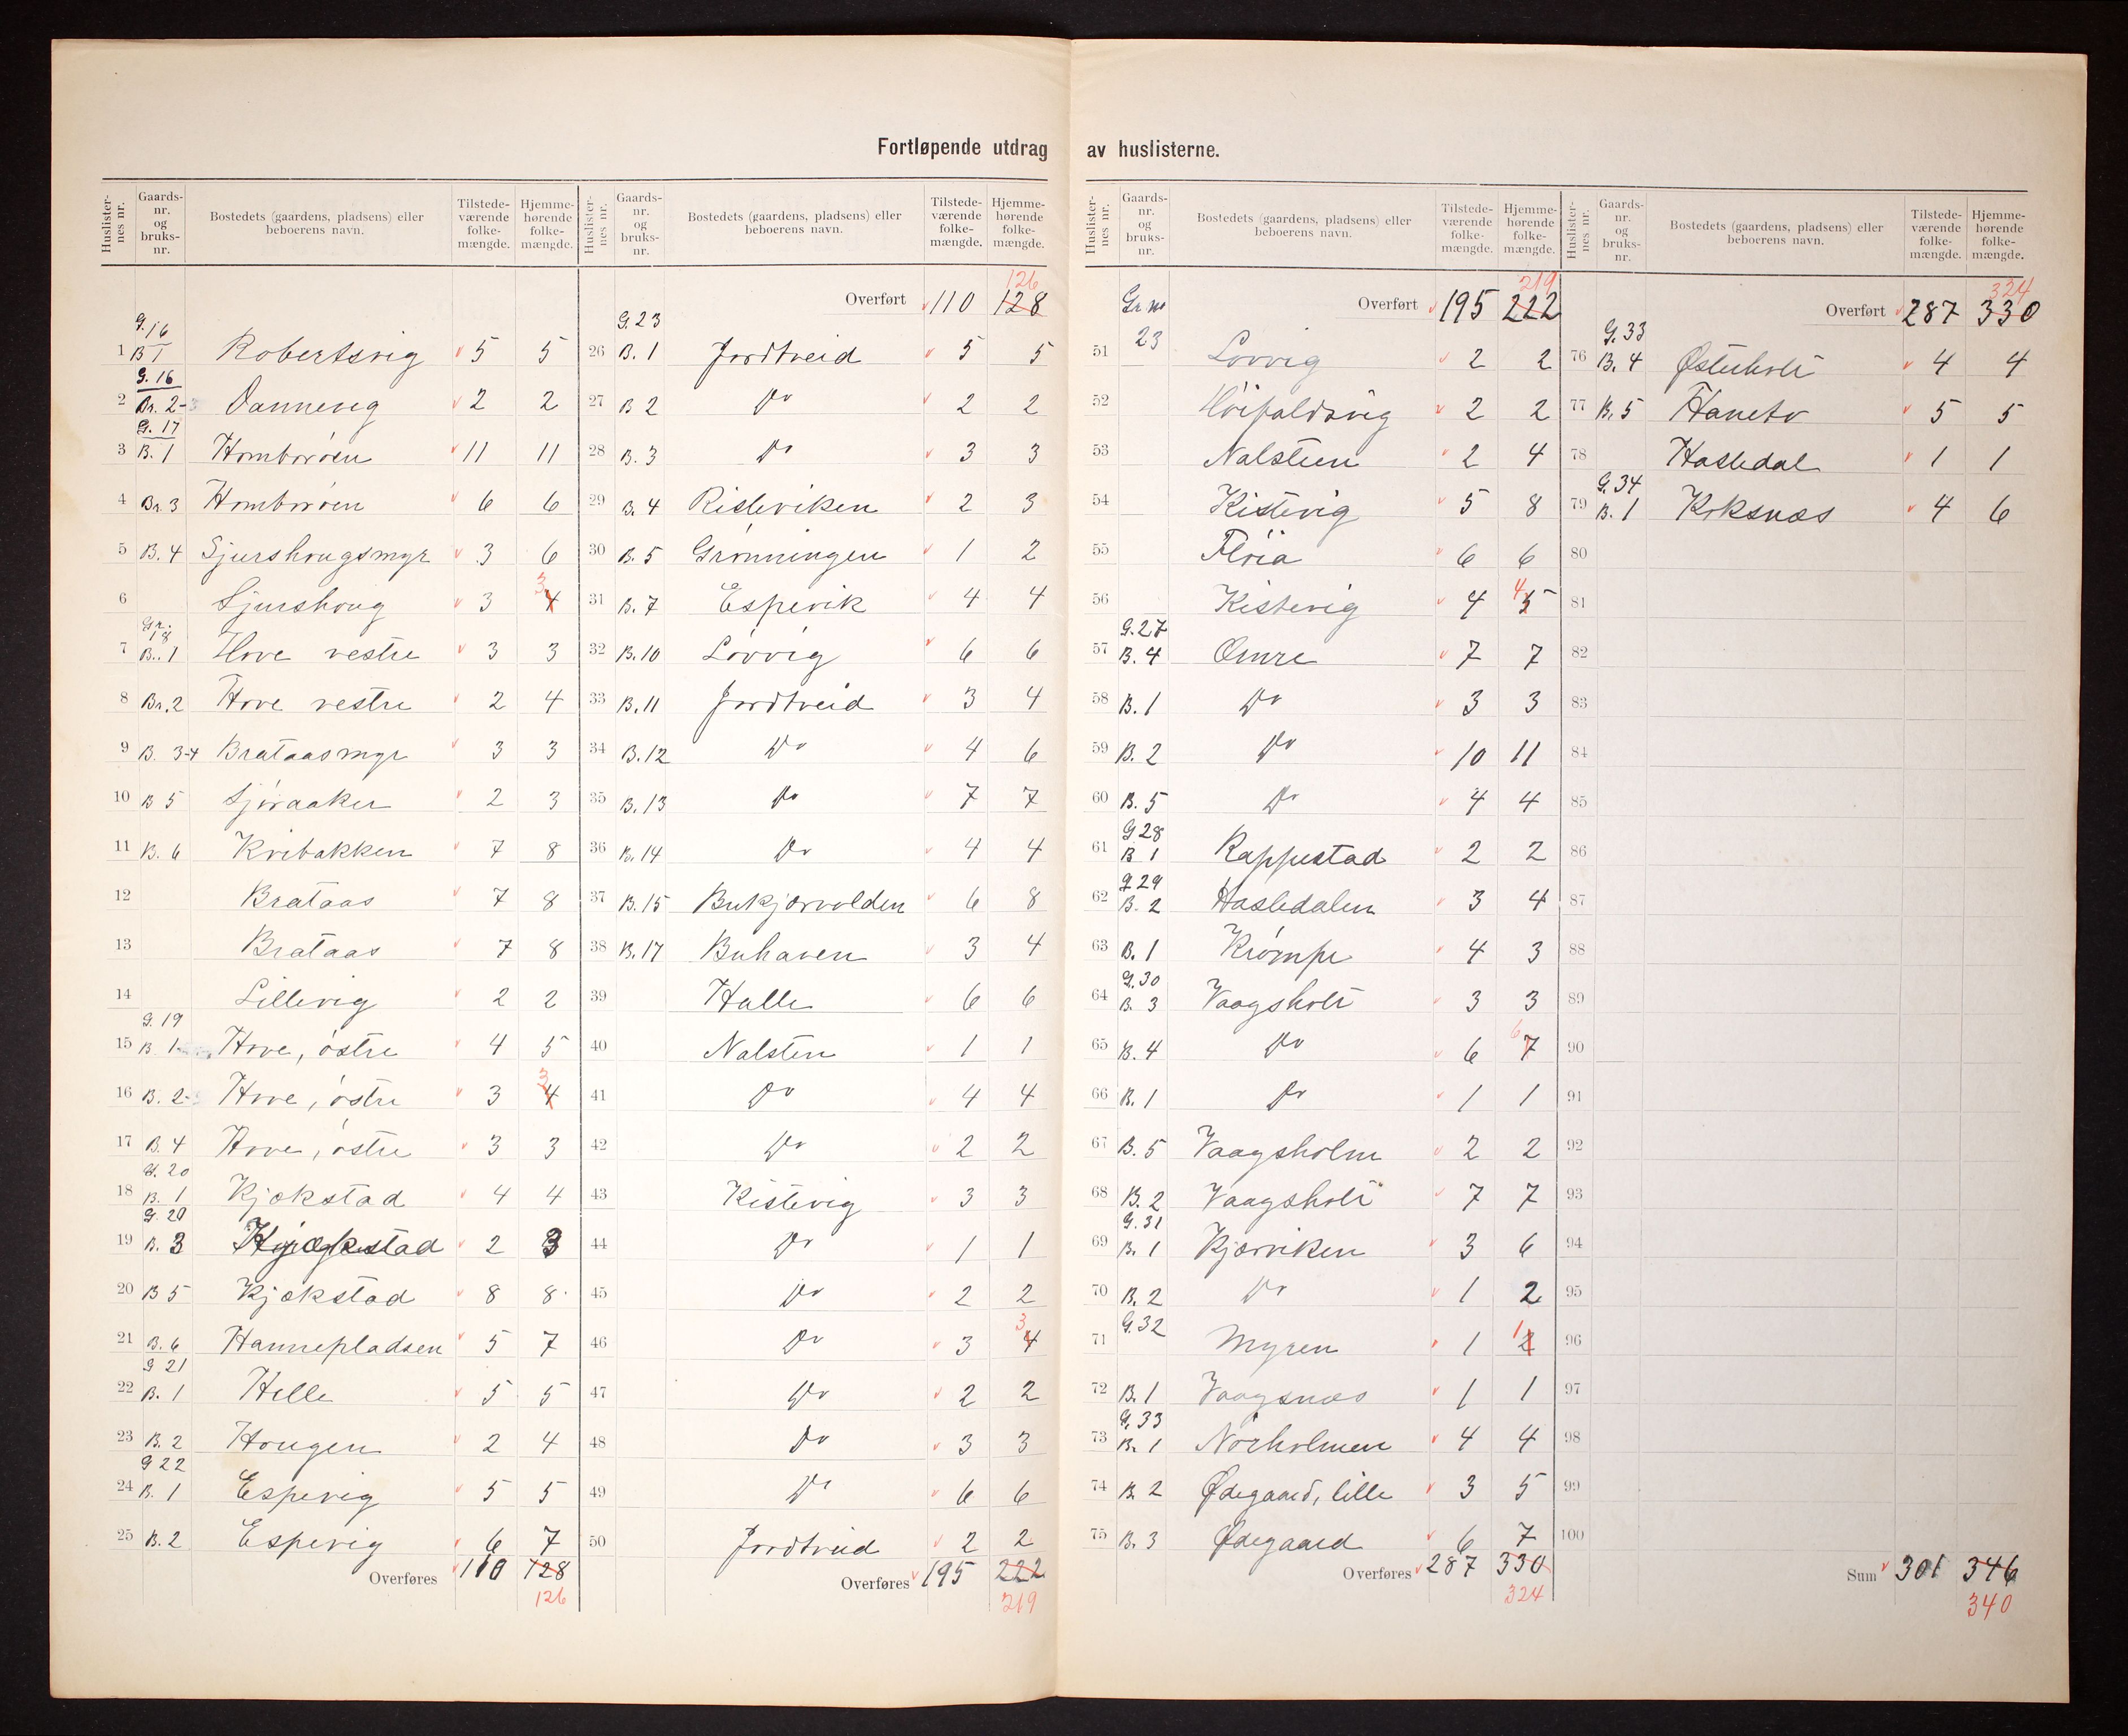 Fortløpende utdrag av huslisterne.
Huslisternes nr. Gaards-nr. og bruks-nr. Bostedets (gaardens, pladsens) eller beboerens navn. Tilstedeværende folkemængde. Hjemmehørende folkemængde.
G. 16
1 B 1 Robertsvig 5 5
G. 16
2 Br. 2-3 Dannevig 2 2
G. 17
3 B. 1 Homborøen 11 11
4 Br. 3 Homborøen 6 6
5 B. 4 Sjurshougsmyr 3 6
6 Sjurshoug 3 4 3
Gr. 18
7 B. 1 Hove vestre 3 3
8 Br. 2 Hove vestre 2 4
9 B. 3-4 Brataasmyr 3 3
10 B 5 Sjøraaker 2 3
11 B. 6 Kvibakken 7 8
12 Brataas 7 8
13 Brataas 7 8
14 Lillevig 2 2
G. 19
15 B 1 Hove, østre 4 5
16 B. 2- Hove, østre 3 4 3
17 B. 4 Hove, østre 3 3
G. 20
18 B. 1 Kjøkstad 4 4
G. 20
19 B. 3 Kjøkstad 2 3
20 B 5 Kjøkstad 8 8
21 B. 6 Hannepladsen 5 7
G 21
22 B. 1 Helle 5 5
23 B. 2 Hougen 2 4
G 22
24 B. 1 Espevig 5 5
25 B. 2 Espevig 6 7
Overføres 110 128
126
Huslisternes nr. Gaards-nr. og bruks-nr. Bostedets (gaardens, pladsens) eller beboerens navn. Tilstedeværende folkemængde. Hjemmehørende folkemængde.
126
Overført 110 128
G. 23
26 B. 1 Jordtveid 5 5
27 B 2 Do 2 2
28 B. 3 Do 3 3
29 B. 4 Risleviken 2 3
30 B. 5 Grønningen 1 2
31 B. 7 Espevik 4 4
32 B. 10 Løvvig 6 6
33 B. 11 Jordtveid 3 4
34 B. 12 Do 4 6
35 B. 13 Do 7 7
36 B. 14 Do 4 4
37 B. 15 Bukjærvolden 6 8
38 B. 17 Buhaven 3 4
39 Halle 6 6
40 Nalsten 1 1
41 Do 4 4
42 Do 2 2
43 Kistevig 3 3
44 Do 1 1
45 Do 2 2
46 Do 3 4 3
47 Do 2 2
48 Do 3 3
49 Do 6 6
50 Jordtveid 2 2
Overføres 195 222
219
Huslisternes nr. Gaards-nr. og bruks-nr. Bostedets (gaardens, pladsens) eller beboerens navn. Tilstedeværende folkemængde. Hjemmehørende folkemængde.
219
Gr no Overført 195 222
23
51 Løvvig 2 2
52 Høifaldsvig 2 2
53 Nalsteen 2 4
54 Kistevig 5 8
55 Fløia 6 6
56 Kistevig 4 5 4
G. 27
57 B. 4 Omre 7 7
58 B. 1 Do 3 3
59 B. 2 Do 10 11
60 B. 5 Do 4 4
G 28
61 B 1 Rappestad 2 2
G 29
62 B. 2 Hasledalen 3 4
63 B. 1 Krømpe 4 3
G. 30
64 B. 3 Vaagsholt 3 3
65 B. 4 Do 6 7 6
66 B. 1 Do 1 1
67 B. 5 Vaagsholm 2 2
68 B. 2 Vaagsholt 7 7
G. 31
69 B. 1 Kjærviken 3 6
70 B. 2 Do 1 2
G. 32
71 Myren 1 2 1
72 B. 1 Vaagsnæs 1 1
G. 33
73 Br. 1 Nørholmen 4 4
74 B. 2 Ødegaard, lille 3 5
75 B. 3 Ødegaard 6 7
Overføres 287 330
324
Huslisternes nr. Gaards-nr. og bruks-nr. Bostedets (gaardens, pladsens) eller beboerens navn. Tilstedeværende folkemængde. Hjemmehørende folkemængde.
324
Overført 287 330
G. 33
76 B. 4 Østerholt 4 4
77 B. 5 Haneto 5 5
78 Hasledal 1 1
G. 34
79 B. 1 Koksnæs 4 6
80
81
82
83
84
85
86
87
88
89
90
91
92
93
94
95
96
97
98
99
100
Sum 301 346
340